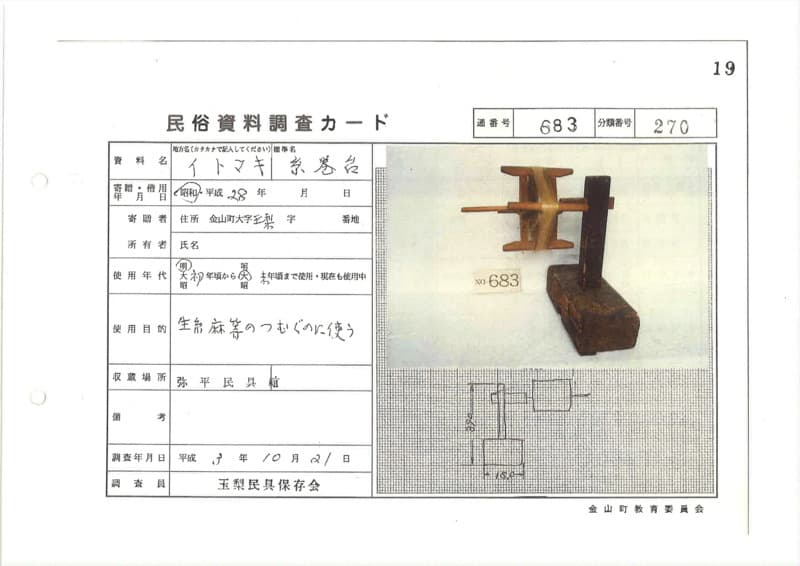 19
民俗資料調査カード
通番号 683 分類番号 270
地方名(カタカナで記入してください) 標準名
資料名 イトマキ 糸巻台
寄贈・借用年月日 昭和・平成 28年 月 日
寄贈者 住所 金山町大字玉梨 字 番地
所有者 氏名
使用年代 明 大 昭 初年頃から 昭 大 昭 末年頃まで使用・現在も使用中
使用目的 生糸麻等のつむぐのに使う
NO. 683
収蔵場所 弥平民具館
備考
390
150
調査年月日 平成 3年 10月 21日
調査員 玉梨民具保存会
金山町教育委員会